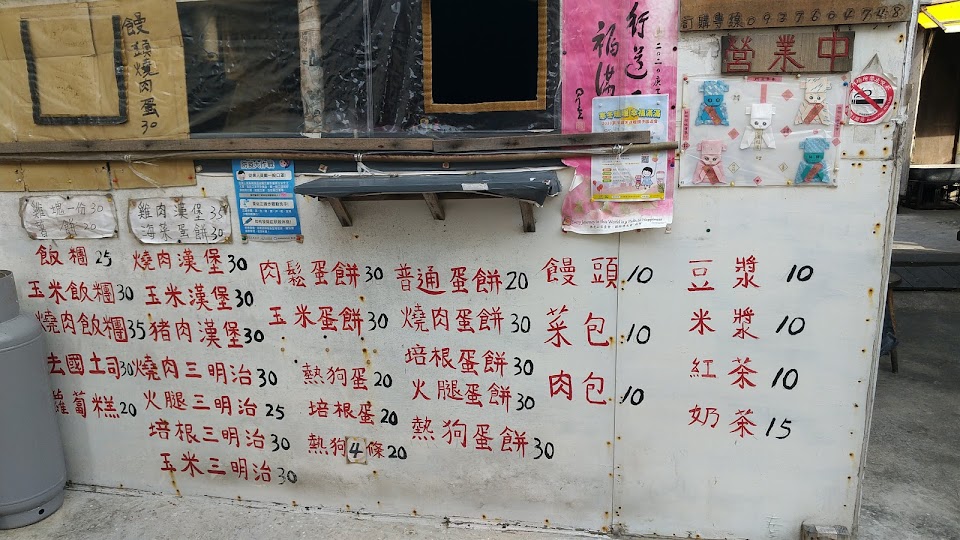 饅頭燒肉蛋30
行道
福滿
二〇二〇
訂購專線0937604748
營業中
雞塊一份30
20
雞肉漢堡35
海菜蛋餅30
飯糰25
玉米飯糰30
燒肉飯糰35
法國土司30
蘿蔔糕20
燒肉漢堡30
玉米漢堡30
豬肉漢堡30
燒肉三明治30
火腿三明治25
培根三明治30
玉米三明治30
肉鬆蛋餅30
玉米蛋餅30
熱狗蛋20
培根蛋20
熱狗4條20
普通蛋餅20
燒肉蛋餅30
培根蛋餅30
火腿蛋餅30
熱狗蛋餅30
饅頭10
菜包10
肉包10
豆漿10
米漿10
紅茶10
奶茶15